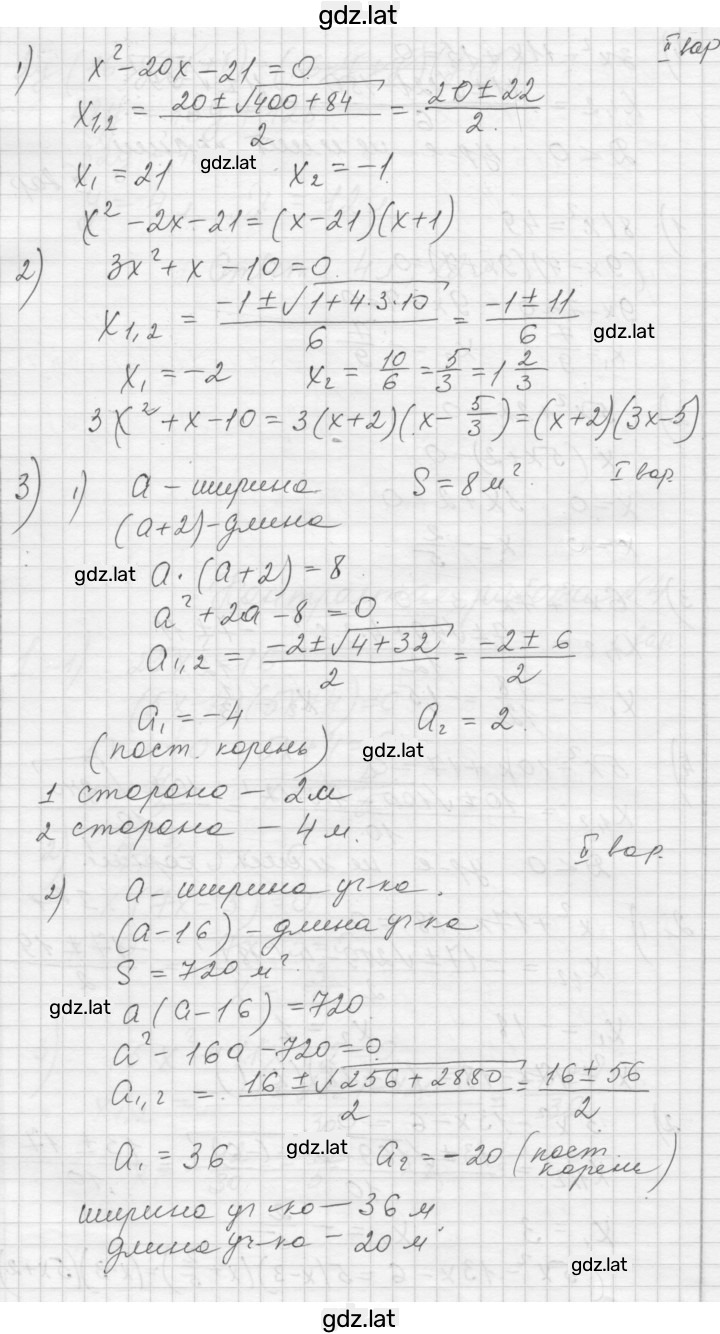 gdz.lat
II вар
1) x² - 20x - 21 = 0
x₁,₂ = (20 ± √(400 + 84))/2 = (20 ± 22)/2.
gdz.lat
x₁ = 21 x₂ = -1
x² - 2x - 21 = (x - 21)(x + 1)
2) 3x² + x - 10 = 0
x₁,₂ = (-1 ± √(1 + 4·3·10))/6 = (-1 ± 11)/6
gdz.lat
x₁ = -2 x₂ = 10/6 = 5/3 = 1 2/3
3x² + x - 10 = 3(x + 2)(x - 5/3) = (x + 2)(3x - 5)
3) 1) a - ширина S = 8 м². I вар.
(a + 2) - длина
gdz.lat
a · (a + 2) = 8
a² + 2a - 8 = 0
a₁,₂ = (-2 ± √(4 + 32))/2 = (-2 ± 6)/2
a₁ = -4 a₂ = 2
(пост. корень)
gdz.lat
1 сторона - 2м
2 сторона - 4 м.
II вар.
2) a - ширина уч-ка.
(a - 16) - длина уч-ка
S = 720 м².
gdz.lat
a(a - 16) = 720
a² - 16a - 720 = 0
a₁,₂ = (16 ± √(256 + 2880))/2 = (16 ± 56)/2
a₁ = 36 a₂ = -20 (пост. корень)
gdz.lat
ширина уч-ка - 36 м
длина уч-ка - 20 м
gdz.lat
gdz.lat